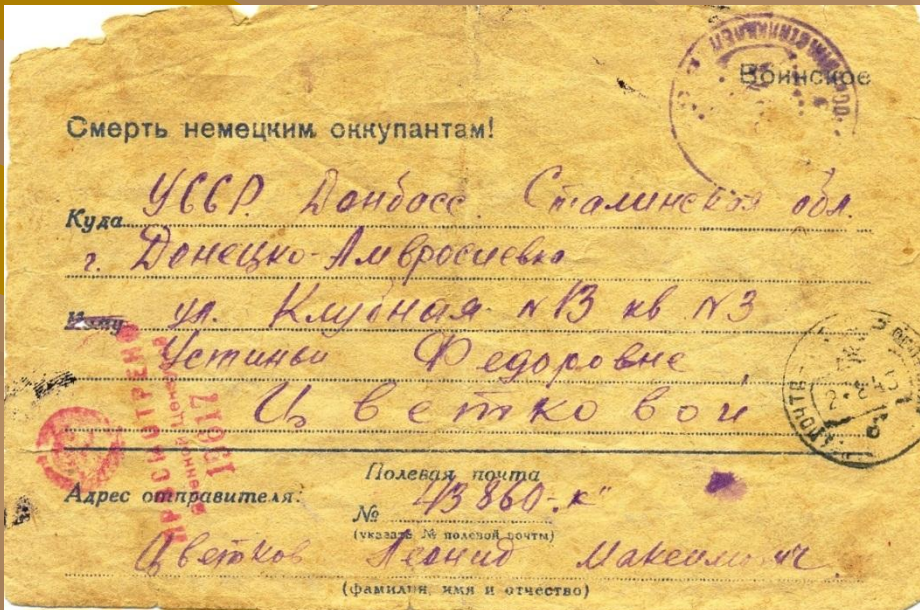 Воинское
Смерть немецким оккупантам!
Куда УССР. Донбасс. Сталинская обл.
г. Донецко-Амвросиевка
Кому ул. Клубная N13 кв N3
Устиньи Федоровне
Цветковой
ПРОСМОТРЕНО
Военной Цензурой
13017
Адрес отправителя:
Полевая почта
№ 43860-к"
(указать № полевой почты)
Цветков Леонид Максимович
(фамилия, имя и отчество)